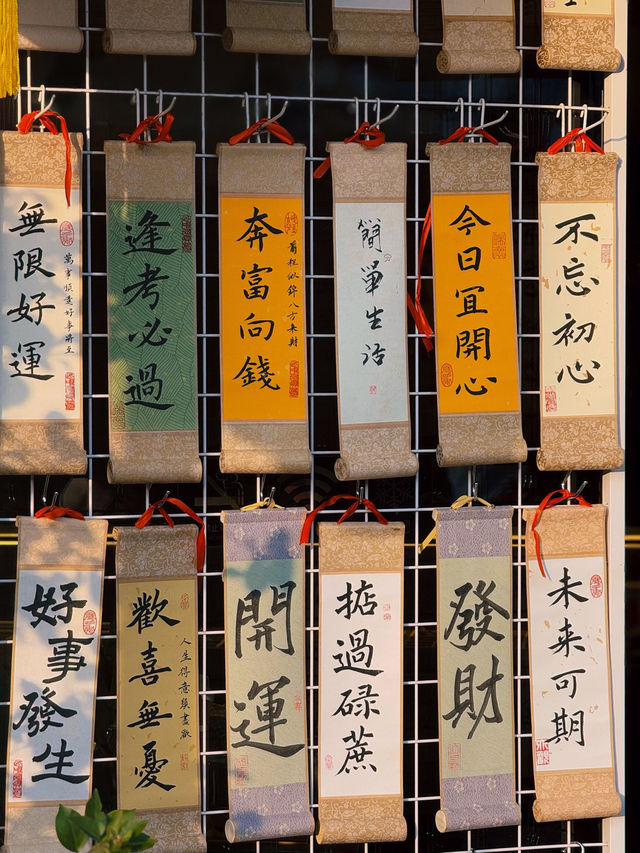 無限好運
萬事順意好事將至
逢考必過
奔富向錢
前程似錦八方来財
簡單生活
今日宜開心
不忘初心
好事發生
歡喜無憂
人生得意須盡歡
開運
掂過碌蔗
發財
未来可期